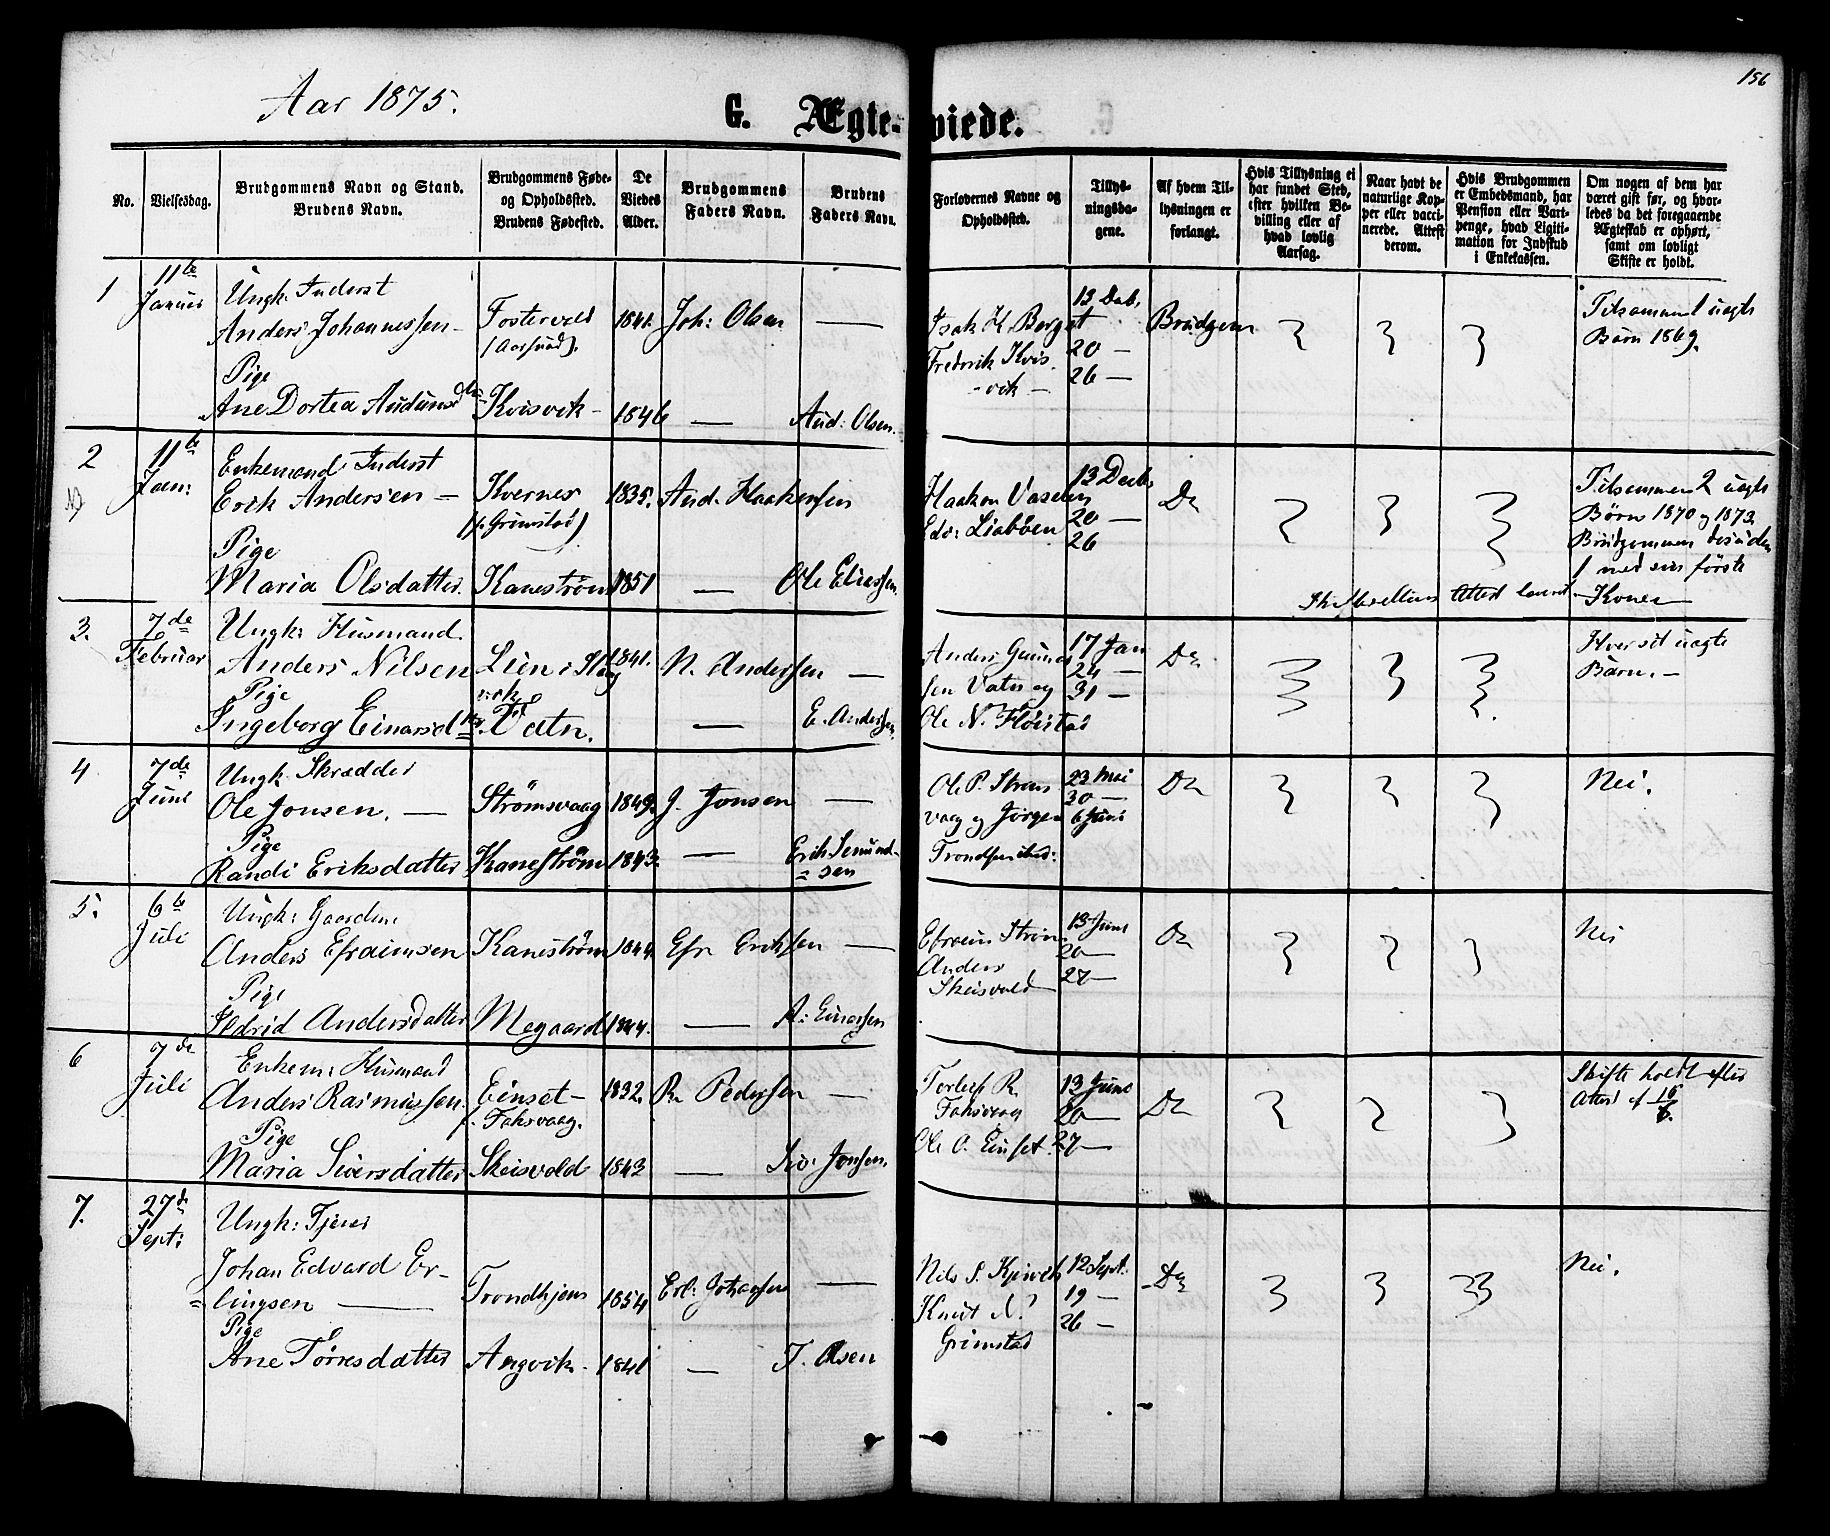 156
Aar 1875.
G. Ægte-viede.
No.
Vielsesdag.
Brudgommens Navn og Stand.
Brudens Navn.
Brudgommens Føde-
og Opholdssted.
Brudens Fødested.
De
Viedes
Alder.
Brudgommens
Faders Navn.
Brudens
Faders Navn.
Forlovernes Navne og
Opholdssted.
Tillys-
ningsda-
gene.
Af hvem Til-
lysningen er
forlangt.
Hvis Tillysning ei
har fundet Sted,
efter hvilken Be-
villing eller af
hvad lovlig
Aarsag.
Naar havt de
naturlige Kop-
per eller vacci-
nerede. Attest
derom.
Hvis Brudgommen
er Embedsmand, har
Pension eller Vart-
penge, hvad Ligiti-
mation for Indskud
i Enkekassen.
Om nogen af dem har
været gift før, og hvor-
ledes da det foregaaende
Ægteskab er ophørt,
samt om lovligt
Skifte er holdt.
1
11te
Januar
Ungk. Inderst
Anders Johannessen —
Pige
Ane Dortea Audunsdtr
Fostervold
(Aarsund).
Kvisvik —
1841.
1846
Joh: Olsen
—
—
Aud: Olsen.
Isak K. Bergset
Frederik Kvis-
- vik —
13 Deb.
20 —
26 —
Brudgom
Tilsammen 1 uægte
Barn 1869.
2
11te
Jan:
Enkemand Inderst
Erik Andersen —
Pige
Maria Olsdatter.
Kvernes
(f. Grimstad)
Kanestrøm
1835.
1851
And. Haakensen
—
Ole Eliassen.
Haakon Vaselen
Edv: Liabøen
13 Decb.
20 —
26
Do
Tilsammen 2 uægte
Børn 1870 og 1873.
Brudgommen desuden
1 med sin første
Kone —
Attest
3.
7de
Februar
Ungk: Husmand.
Anders Nilsen
Pige
Ingeborg Einarsdtr
Lien i Stang
vik
Vatn.
1841.
N. Andersen
—
—
E. Andersen.
Anders Gunnar
sen Vatn og
Ole N. Fløistad
17 Jan
24 —
31 —
Do
Hver sit uægte
Barn. —
4
7de
Juni
Ungk. Skrædder
Ole Jonsen. —
Pige
Randi Eriksdatter
Strømsvaag
Kanestrøm
1849.
1843.
J. Jonsen
—
—
Erik Semund-
= sen
Ole P. Strøms
vaag og Jørgen
Trondsen ibid:
23 Mai
30 —
6 Juni
Do
Nei.
5.
6te
Juli
Ungk: Gaardm.
Anders Efraimsen
Pige
Ildrid Andersdatter
Kanestrøm
Megaard
1844.
1844.
Efr Eriksen
—
—
A: Einarsen
Efraim Strøm
Anders
Skeisvold
13 Juni
20 —
27 —
Do
Nei
6
7de
Juli
Enkem: Husmand
Anders Rasmussen.
Pige
Maria Siversdatter
Einset —
f. Fahsvaag.
Skeisvold
1832.
1843
R. Pedersen
—
—
Siv: Jonsen.
Torleif R.
Fahsvaag
Ole O. Einset.
13 Juni
20 —
27 —
Do
Skifte holdt efter
Attest af 16/6.
7.
27de
Sept:
Ungk: Tjener
Johan Edvard Er-
= lingsen —
Pige
Ane Tørresdatter
Trondhjem
Angvik.
1854
1841
Erl: Johansen
—
—
T. Olsen
Nils S. Kjørvik
Knut N.
Grimstad
12 Sept.
19 —
26 —
Do
Nei.